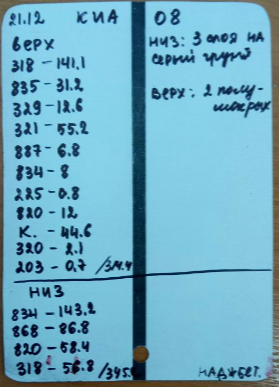 21.12 КИА 08
верх
318 – 141.1
835 – 31.2
329 – 12.6
321 – 55.2
887 – 6.8
834 – 8
225 – 0.8
820 – 12
К. – 44.6
320 – 2.1
203 – 0.7 /314.4
НИЗ
834 – 143.2
868 – 86.8
820 – 58.4
318 – 56.8 /345.
НИЗ: 3 слоя НА
серый грунт
верх: 2 полу-
мокрых
НАДЖБЕТ.